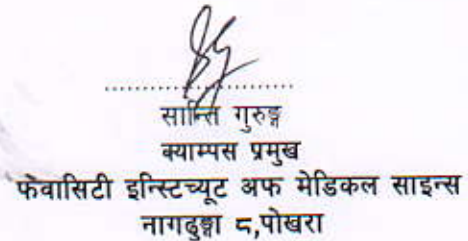 सान्ति गुरुङ्ग
क्याम्पस प्रमुख
फेवासिटी इन्स्टिच्यूट अफ मेडिकल साइन्स
नागढुङ्गा ८,पोखरा